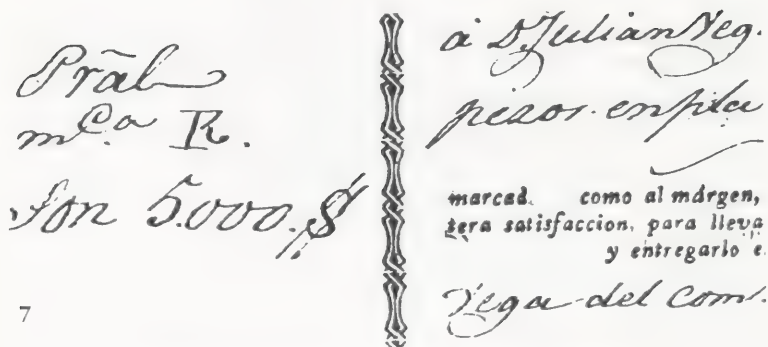 Prãl
mca R.
Son 5.000.$
7
à D. Julian Veg.
pesos en plta
marcad. como al márgen,
tera satisfaccion, para lleva
y entregarlo e
Vega del Com.